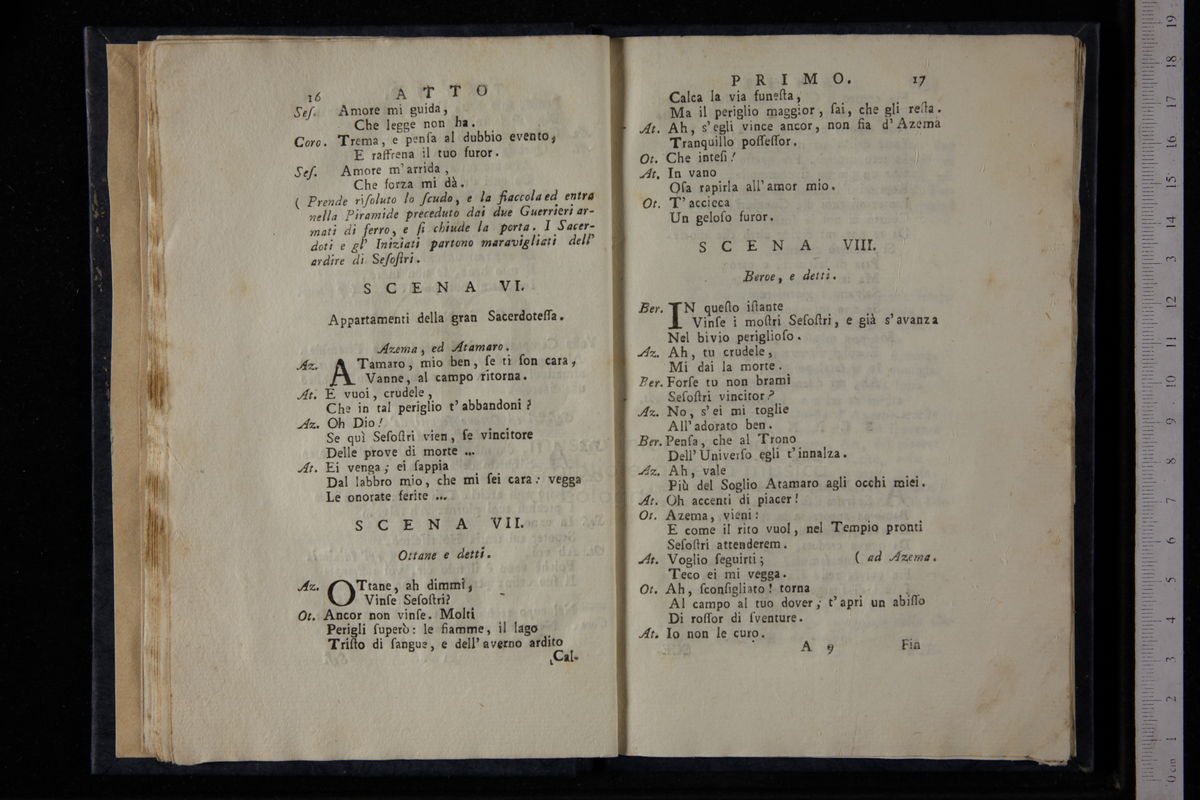 16 ATTO
Seſ. Amore mi guida,
Che legge non ha.
Coro. Trema, e penſa al dubbio evento,
E raffrena il tuo furor.
Seſ. Amore m'arrida,
Che forza mi dà.
( Prende riſoluto lo ſcudo, e la fiaccola ed entra
nella Piramide preceduto dai due Guerrieri ar-
mati di ferro, e ſi chiude la porta. I Sacer-
doti e gl' Iniziati partono maravigliati dell'
ardire di Seſoſtri.
SCENA VI.
Appartamenti della gran Sacerdoteſſa.
Azema, ed Atamaro.
Az. ATamaro, mio ben, ſe ti ſon cara,
Vanne, al campo ritorna.
At. E vuoi, crudele,
Che in tal periglio t'abbandoni?
Az. Oh Dio!
Se quì Seſoſtri vien, ſe vincitore
Delle prove di morte ...
At. Ei venga; ei ſappia
Dal labbro mio, che mi ſei cara: vegga
Le onorate ferite ...
SCENA VII.
Ottane e detti.
Az. OTtane, ah dimmi,
Vinſe Seſoſtri?
Ot. Ancor non vinſe. Molti
Perigli ſuperò: le fiamme, il lago
Triſto di ſangue, e dell'averno ardito
Cal-
PRIMO. 17
Calca la via funeſta,
Ma il periglio maggior, ſai, che gli reſta.
At. Ah, s'egli vince ancor, non fia d'Azema
Tranquillo poſſeſſor.
Ot. Che inteſi!
At. In vano
Oſa rapirla all'amor mio.
Ot. T'accieca
Un geloſo furor.
SCENA VIII.
Beroe, e detti.
Ber. IN queſto iſtante
Vinſe i moſtri Seſoſtri, e già s'avanza
Nel bivio periglioſo.
Az. Ah, tu crudele,
Mi dai la morte.
Ber. Forſe tu non brami
Seſoſtri vincitor?
Az. No, s'ei mi toglie
All'adorato ben.
Ber. Penſa, che al Trono
Dell'Univerſo egli t'innalza.
Az. Ah, vale
Più del Soglio Atamaro agli occhi miei.
At. Oh accenti di piacer!
Ot. Azema, vieni:
E come il rito vuol, nel Tempio pronti
Seſoſtri attenderem.
At. Voglio ſeguirti; ( ad Azema.
Teco ei mi vegga.
Ot. Ah, ſconſigliato! torna
Al campo al tuo dover; t'apri un abiſſo
Di roſſor di ſventure.
At. Io non le curo.
A 9 Fin
0 cm 1 2 3 4 5 6 7 8 9 10 11 12 13 14 15 16 17 18 19